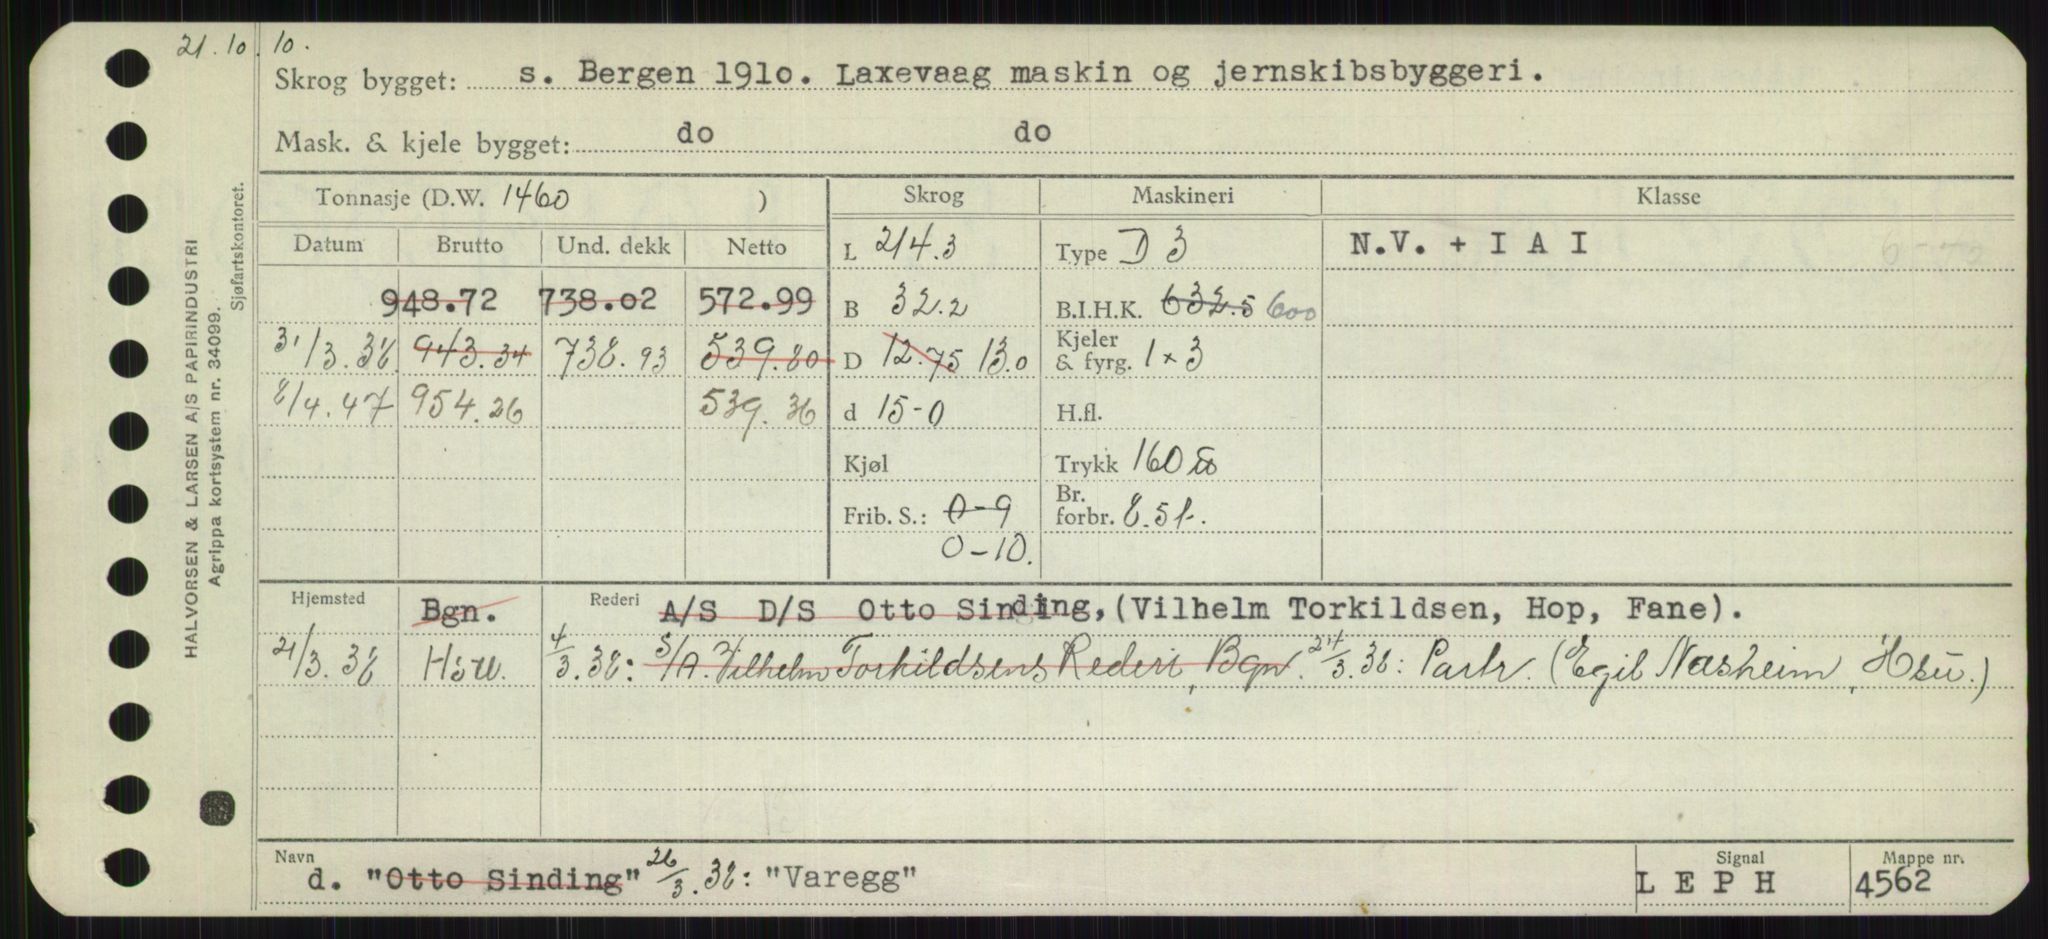 21.10.10.
Skrog bygget: s. Bergen 1910. Laxevaag maskin og jernskibsbyggeri.
Mask. & kjele bygget: do do
Tonnasje (D.W. 1460 ) Skrog Maskineri Klasse
Datum Brutto Und. dekk Netto L 214.3 Type D 3 N.V. + I A I
948.72 738.02 572.99 B 32.2 B.I.H.K. 632.5 600
31/3.38 943.34 738.93 539.80 D 12.75 13.0 Kjeler & fyrg. 1 x 3
8/4.47 954.26 539.36 d 15-0 H.fl.
Kjøl Trykk 160
Frib. S.: 0-9 Br. forbr. 8.5t.
0-10.
Hjemsted Bgn. Rederi A/S D/S Otto Sinding, (Vilhelm Torkildsen, Hop, Fane).
21/3.38 4/3.38: S/A. Vilhelm Torkildsens Rederi, Bgn. 24/3.38: Partr. (Egil Næsheim, Hsu.)
Navn d. "Otto Sinding" 26/3.38: "Varegg" Signal L E P H Mappe nr. 4562
HALVORSEN & LARSEN A/S PAPIRINDUSTRI
Agrippa kortsystem nr. 34099.
Sjøfartskontoret.